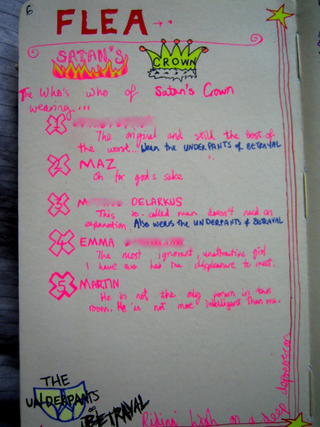 6
FLEA
SATAN'S
CROWN
The Who's Who of Satan's Crown
wearing...
1
The original and still the best of
the worst... Wears the UNDERPANTS of BETRAYAL
2 MAZ
Oh for god's sake
3 M DELARKUS
This so-called man doesn't need an
explanation. Also wears the UNDERPANTS of BETRAYAL
4 EMMA
The most ignorant, unattractive girl
I have ever had the displeasure to meet.
5 MARTIN
He is not the only person in this
room. He is not more intelligent than me.
THE
UNDERPANTS
OF
BETRAYAL
Riding high on a deep depression